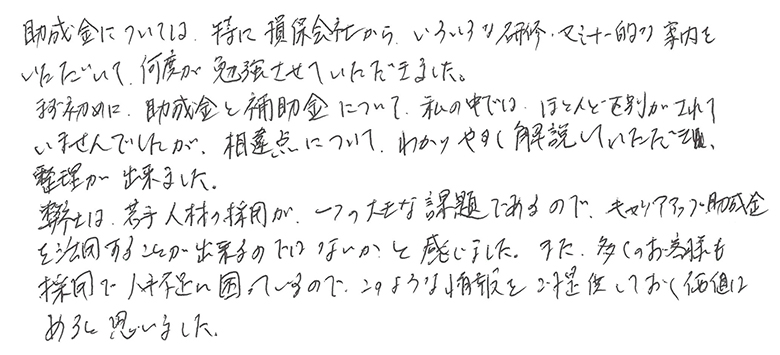 助成金については、特に損保会社から、いろいろな研修・セミナー的な案内を
いただいて、何度か勉強させていただきました。
まず初めに、助成金と補助金について、私の中では、ほとんど区別がされて
いませんでしたが、相違点について、わかりやすく解説していただき、
整理が出来ました。
弊社は、若手人材の採用が、一つの大きな課題であるので、キャリアアップ助成金
を活用することが出来るのではないか、と感じました。また、多くのお客様も
採用で人手不足に困っているので、このような情報をご提供しておく価値は
あると思いました。